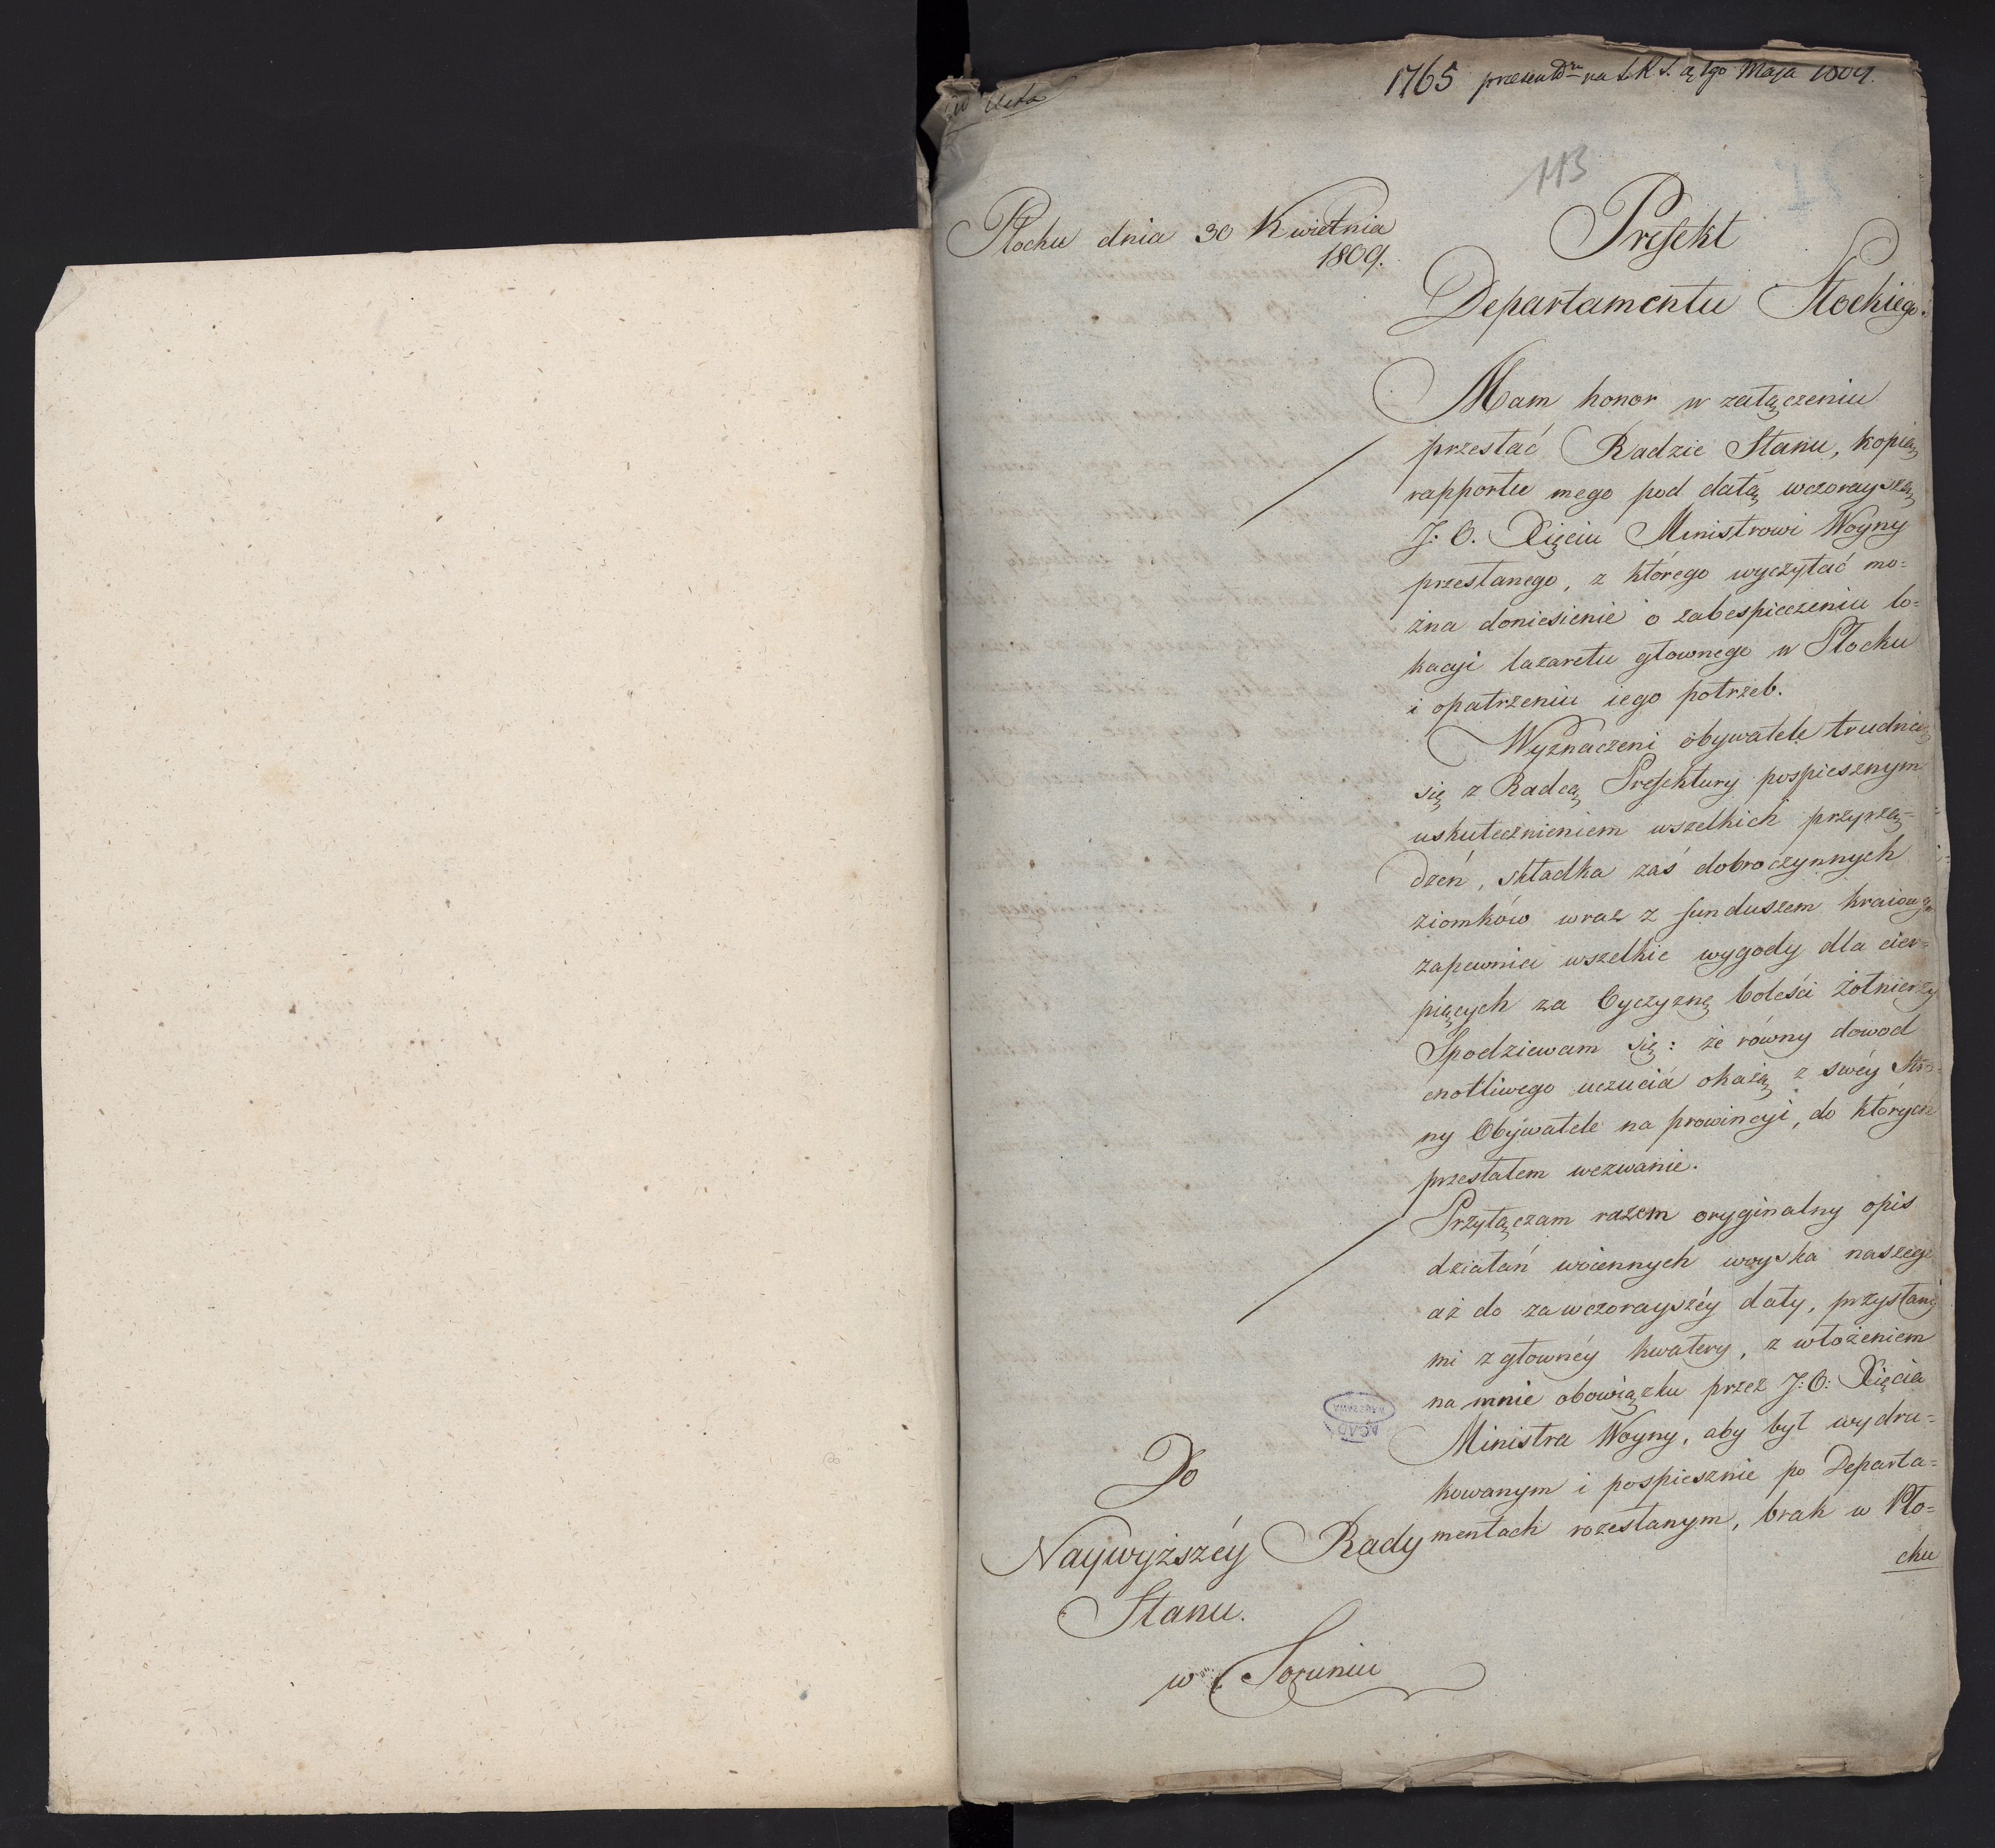 1765 na S. R. S. 1go Maja 1809.
113
Płocku dnia 30 Kwietnia
1809.
Prefekt
Departamentu Płockiego.
Mam honor w załączeniu
przesłać Radzie Stanu, kopią
rapportu mego pod datą wczorayszą
J: O. Xięciu Ministrowi Woyny
przesłanego, z którego wyczytać mo=
żna doniesienie o zabespieczeniu lo=
kacyi lazaretu głownego w Płocku
i opatrzeniu iego potrzeb.
Wyznaczeni obywatele trudnią
się z Radcą Prefektury pospiesznym
uskutecznieniem wszelkich przyrzą=
dzeń, składka zaś dobroczynnych
ziomków wraz z funduszem kraiowym
zapewnia wszelkie wygody dla cier=
piących za Oyczyznę boleści żołnierzy
Spodziewam się: że równy dowod
cnotliwego uczucia okażą z swéy stro=
ny Obywatele na prowincyi, do których
przesłałem wezwanie.
Przyłączam razem oryginalny opis
działań woiennych woyska naszego
aż do zawczorayszéy daty, przysłany
mi z głownéy kwatery, z włożeniem
na mnie obowiązku przez J: O: Xięcia
Ministra Woyny, aby był wydru=
kowanym i pospiesznie po Departa=
mentach rozesłanym, brak w Pło=
cku
AGAD
WARSZAWA
Do
Naywyższéy Rady
Stanu.
w Toruniu